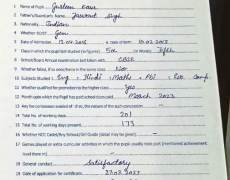 Name of Pupil Gurleen Kaur
Father's/Guardian's Name Jaswant Singh
Nationality Indian
Whether SC/ST Gen
Date of Admission
Class in which the pupil last studied (in figure) 5th
School/Board Annual examination last taken with CBSE
Whether failed, if so once/twice in the same class No
Subjects Studied 1. Eng 2. Hindi 3. Maths 4. Pbi 5. Comp
Whether qualified for promotion to the higher class Yes
Month upto which the Pupil has paid school dues March 2023
Any fee concession availed of: if so, the nature of the such concession
Total No. of working days 201
Total No. of working days present 173
Whether NCC Cadet/Boy Scout/Girl Guide (detail may be given)
Games played or extra curricular activities in which the pupil usually took part (mentioned achievement
level there in)
General conduct Satisfactory
Date of application for certificate